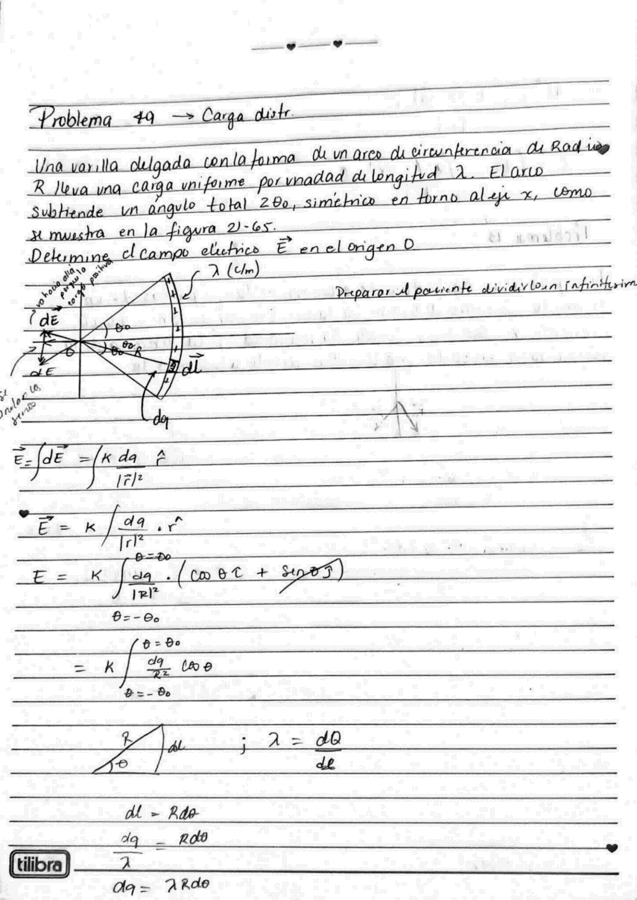 Problema 49 → Carga distr.
Una varilla delgada con la forma de un arco de circunferencia de Radio
R lleva una carga uniforme por unadad de longitud λ. El arco
subtiende un ángulo total 2θ₀, simétrico en torno al eje x, como
se muestra en la figura 21-65.
Determine el campo eléctrico E⃗ en el origen O
λ (c/m)
Preparar el paciente dividirlo in infinitesim
dE⃗
θ₀
θ₀
θ₀
R
θ
dE
dl⃗
dq
E⃗ = ∫dE⃗ = ∫ K dq/|r⃗|² r̂
E⃗ = K ∫ dq/|r|² · r̂
θ=θ₀
E = K ∫ dq/|R|² · (cos θ î + sen θ ĵ)
θ=-θ₀
θ=θ₀
= K ∫ dq/R² cos θ
θ=-θ₀
R
dl
θ
; λ = dQ/dl
dl = Rdθ
dq/λ = Rdθ
dq = λRdθ
tilibra